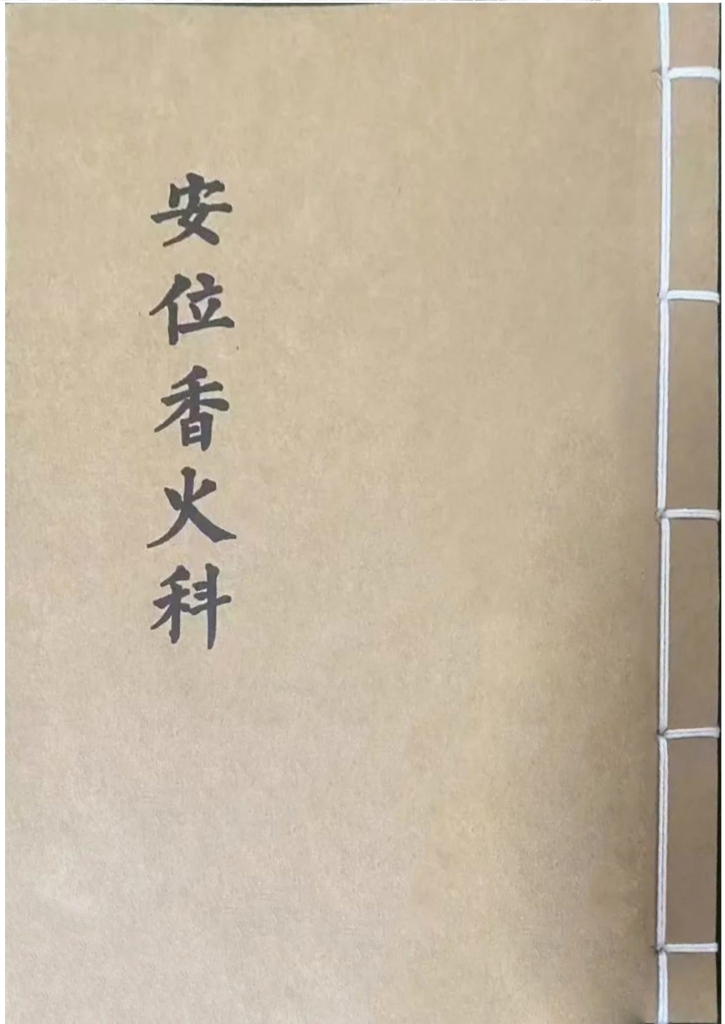 安位香火科